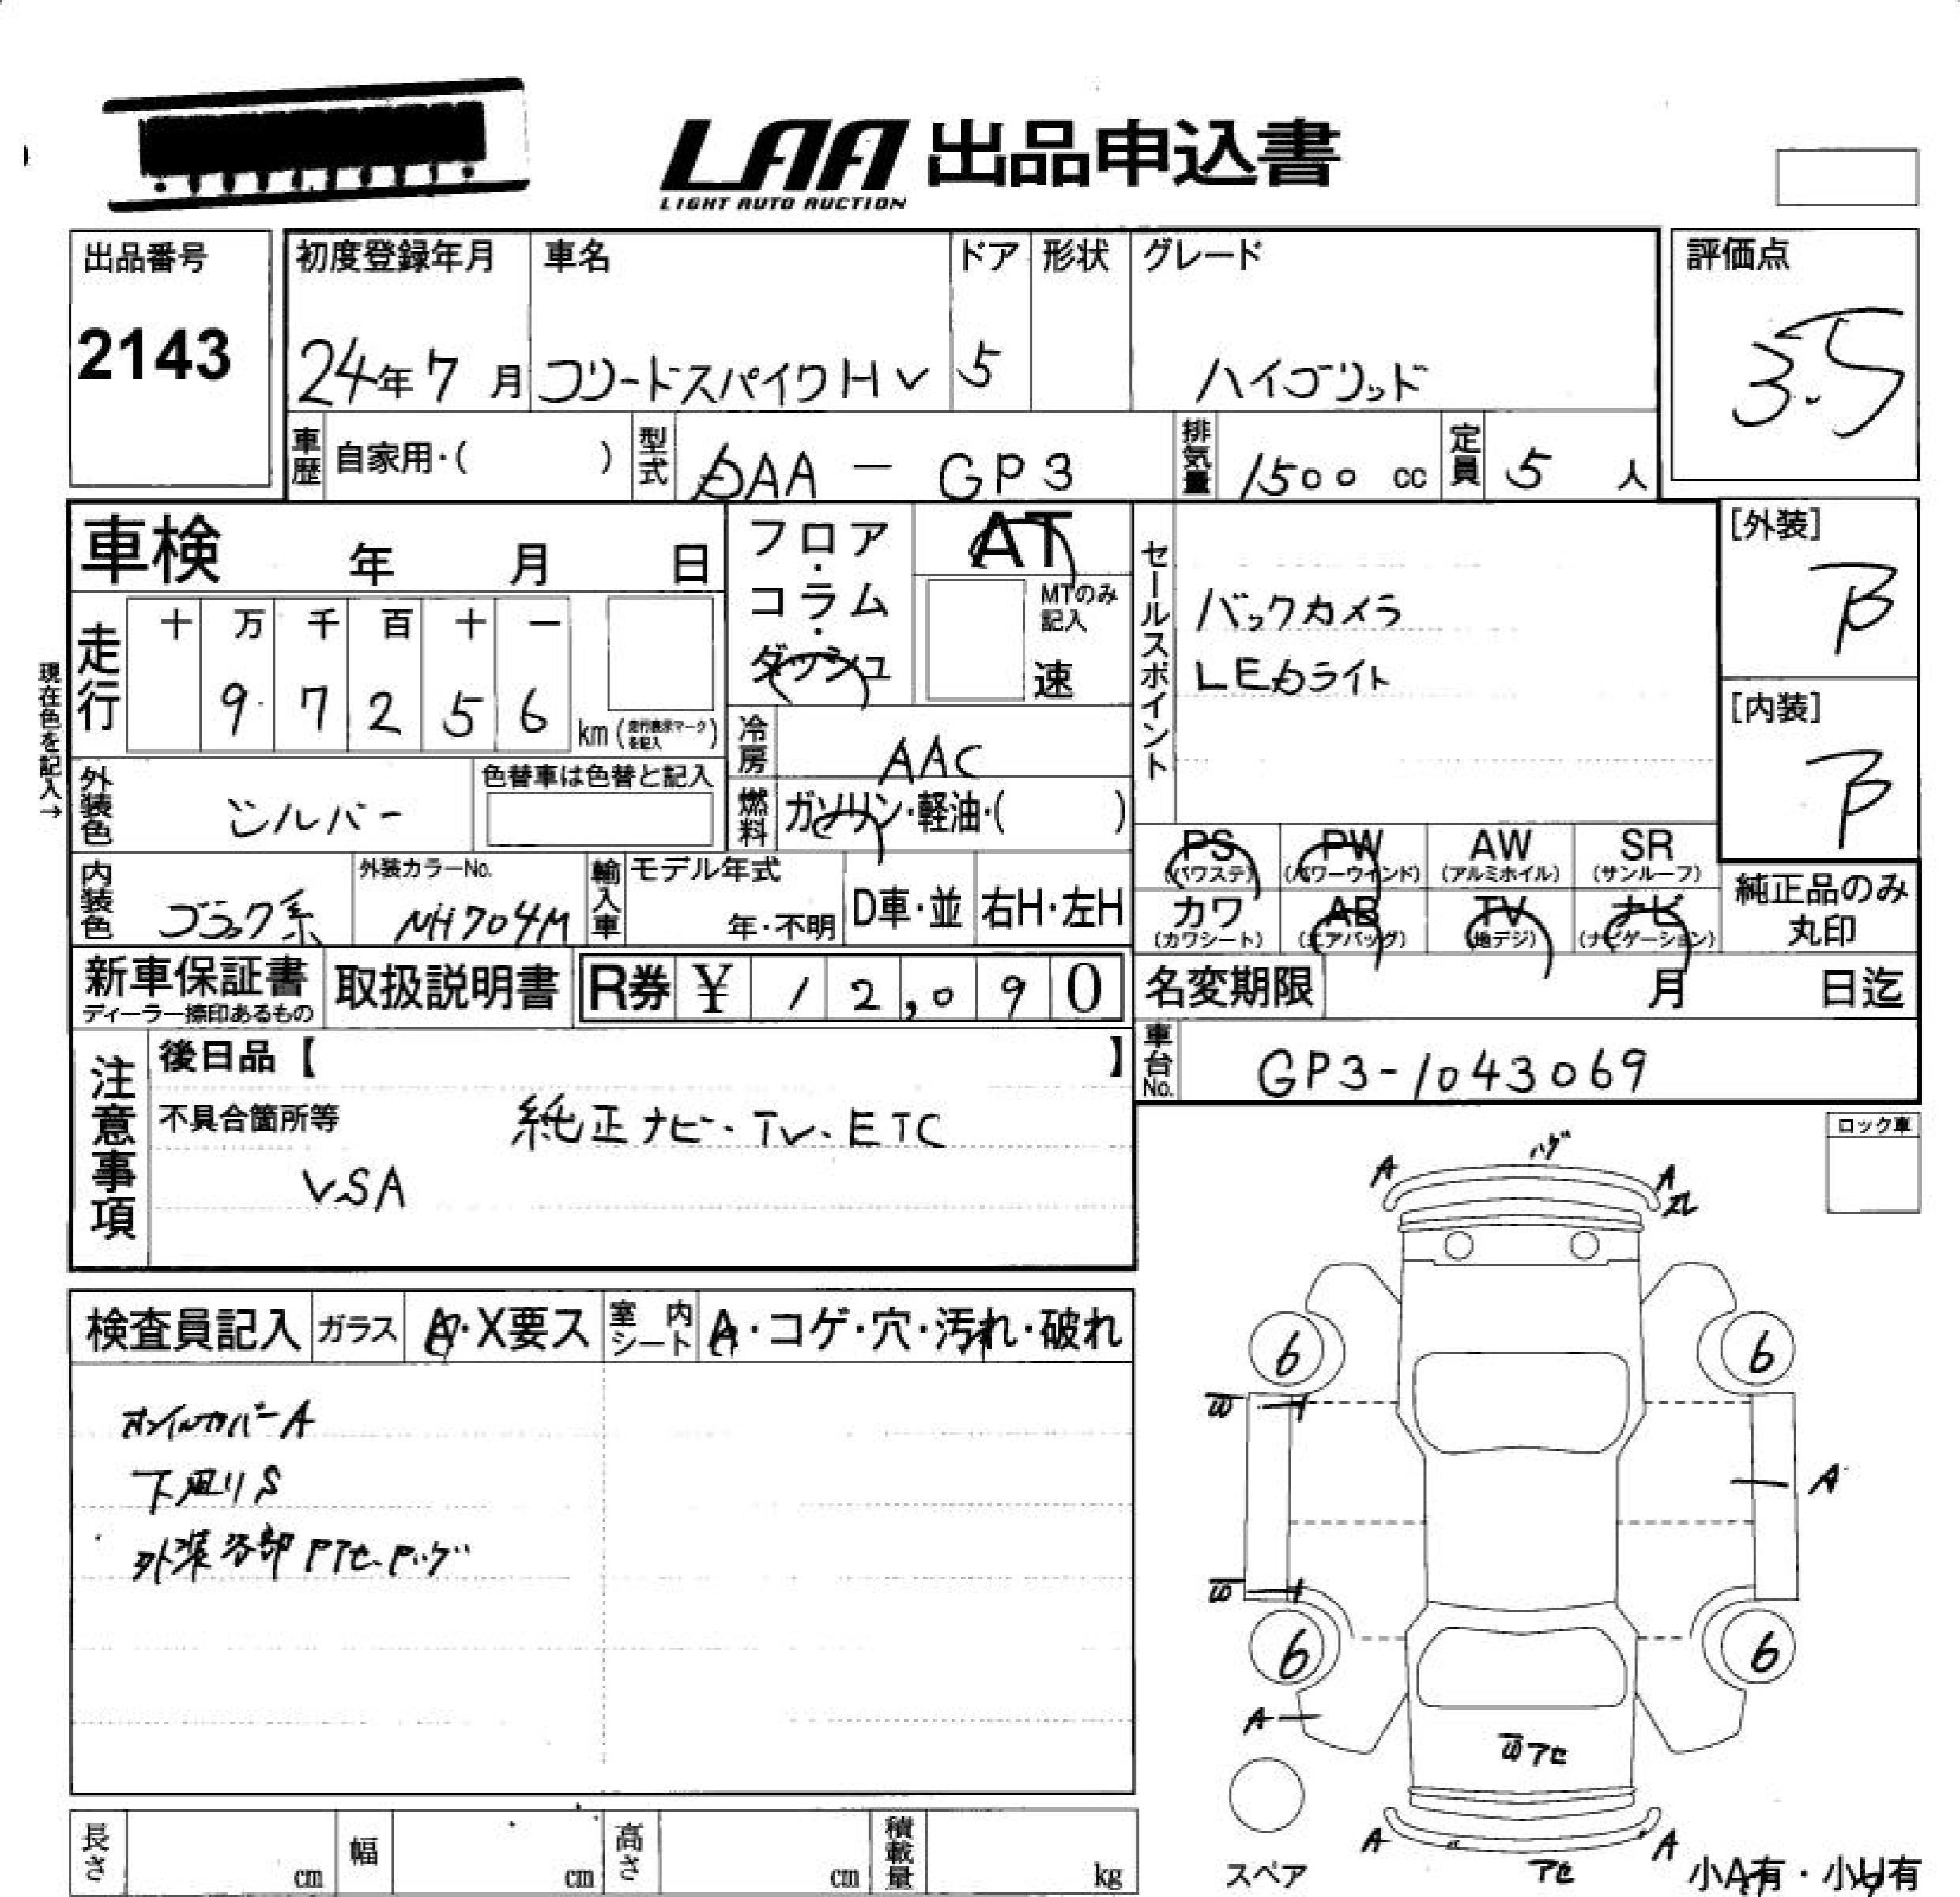 LAA 出品申込書
LIGHT AUTO AUCTION
出品番号
2143
初度登録年月
24年7月
車名
フリードスパイクHV
ドア
5
形状
グレード
ハイブリッド
評価点
3.5
車歴
自家用・( )
型式
DAA-GP3
排気量
1500 cc
定員
5 人
車検 年 月 日
フロア・コラム・ダッシュ
AT
MTのみ記入
速
セールスポイント
バックカメラ
LEDライト
[外装]
B
[内装]
B
現在色を記入→
走行
十 万 千 百 十 一
9 7 2 5 6 km(走行表示マークを記入)
冷房
AAC
燃料
ガソリン・軽油・( )
外装色
シルバー
色替車は色替と記入
内装色
ブラック系
外装カラーNo.
NH704M
輸入車
モデル年式
年・不明
D車・並
右H・左H
PS
(パワステ)
PW
(パワーウインド)
AW
(アルミホイル)
SR
(サンルーフ)
カワ
(カワシート)
AB
(エアバッグ)
TV
(地デジ)
ナビ
(ナビゲーション)
純正品のみ
丸印
新車保証書
ディーラー捺印あるもの
取扱説明書
R券 ¥ 12,090
名変期限 月 日迄
車台No.
GP3-1043069
注意事項
後日品【 】
不具合箇所等
純正ナビ・TV・ETC
VSA
ロック車
ハゲ
A
A
ズレ
検査員記入
ガラス
A・X要ス
室内シート
A・コゲ・穴・汚れ・破れ
A
下廻りS
6
6
W
A
W
6
6
A
Wアセ
A
A
アセ
スペア
小A有・小U有
長さ cm
幅 cm
高さ cm
積載量 kg